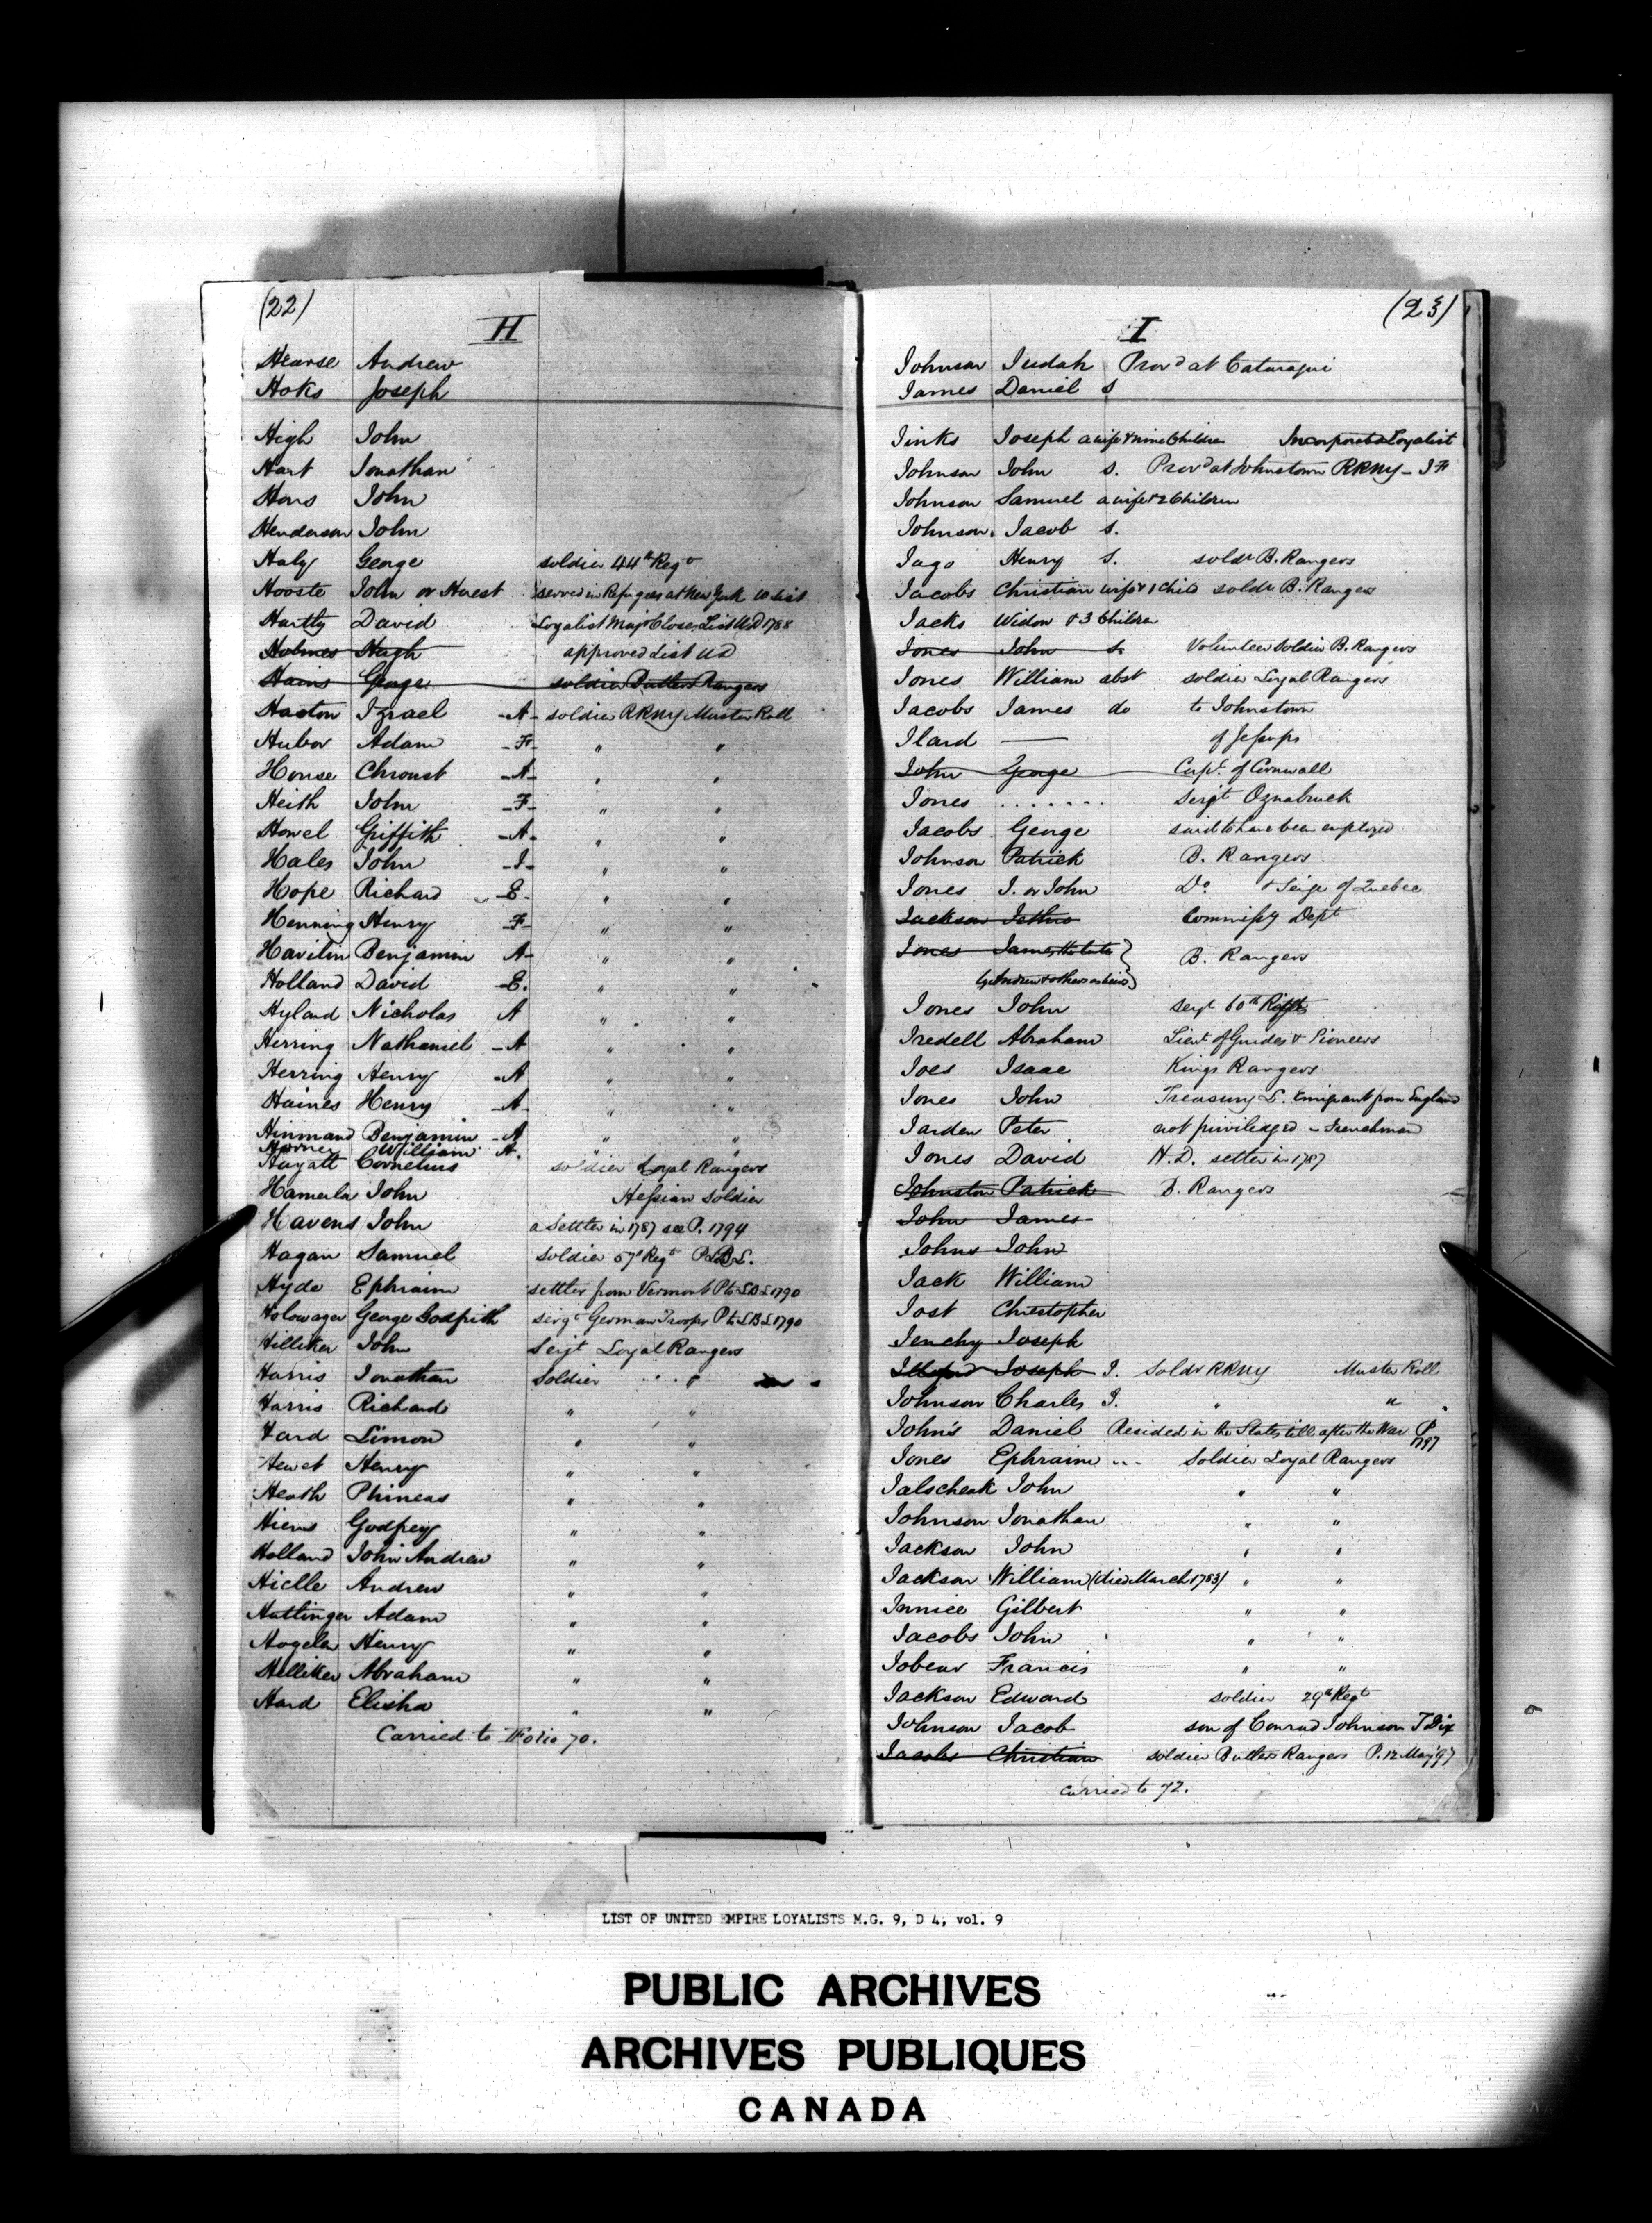 (22)
H
Hearse Andrew
Hoks Joseph
High John
Hart Jonathan
Hons John
Henderson John
Haly George soldier 44th Regt
Hooste John or Huest served in Refugees at New York
Hartly David Loyalist Majr Close's List UD 1788
Holmes Hugh approved List UD
Hains George soldier Butlers Rangers
Haston Izrael -A- soldier RRNY Muster Roll
Hubor Adam -F- " "
House Chroust -A- " "
Heith John -F- " "
Howel Griffith -A- " "
Hales John -I- " "
Hope Richard -E- " "
Henning Henry -F- " "
Havilin Benjamin A- " "
Holland David -E. " "
Hyland Nicholas A " "
Herring Nathaniel -A " "
Herring Henry -A " "
Haines Henry -A- " "
Hinmand Benjamin -A " "
Horner William A. " "
Hayatt Cornelius soldier Loyal Rangers
Hamerla John Hessian Soldier
Havens John a Settler in 1787 see P. 1794
Hagan Samuel soldier 57th Regt P LBL.
Hyde Ephraim settler from Vermont P to LBL 1790
Holowager George Godfrith sergt German Troops P to LBL 1790
Hilliker John Serjt Loyal Rangers
Harris Jonathan Soldier "
Harris Richard " "
Hard Simon " "
Hewet Henry " "
Heath Phineas " "
Hiems Godfrey " "
Holland John Andrew " "
Hielle Andrew " "
Hattinger Adam " "
Hogelen Henry " "
Helliker Abraham " "
Hard Elisha " "
Carried to Folio 70.
(23)
I
Johnson Judah Prov'd at Cataraqui
James Daniel S
Jinks Joseph a wife & nine Children Incorporated Loyalist
Johnson John S. Prov'd at Johnstown RRNY - I F
Johnson Samuel a wife & 2 Children
Johnson Jacob S.
Jago Henry S. soldr B. Rangers
Jacobs Christian wife & 1 Child soldr B. Rangers
Jacks Widow & 3 Children
Jones John S. Volunteer soldier B. Rangers
Jones William abst soldier Loyal Rangers
Jacobs James do to Johnstown
Ilard —— of Jessups
John George Capt. of Cornwall
Jones ....... Serjt Oznabruck
Jacobs George said to have been employed
Johnson Patrick B. Rangers
Jones J. or John Do & Seige of Quebec
Jackson Jethro Commissy Dept
Jones James the late } B. Rangers
by Andrew & others as heirs }
Jones John serjt 60th Regt
Iredell Abraham Lieut of Guides & Pioneers
Joes Isaac Kings Rangers
Jones John Treasury L. Emigrant from England
Jarden Peter not priviledged - Frenchman
Jones David H.D. settler in 1787
Johnston Patrick B. Rangers
John James
Johns John
Jack William
Jost Christopher
Jenchy Joseph
Joseph I. Soldr RRNY Muster Roll
Johnson Charles I. " "
John's Daniel Resided in the States till after the War P 1797
Jones Ephraim ... Soldier Loyal Rangers
Jalscheak John " "
Johnson Jonathan " "
Jackson John " "
Jackson William (died March 1783) " "
Innice Gilbert " "
Jacobs John " "
Jobear Francis " "
Jackson Edward soldier 29th Regt
Johnson Jacob son of Conrad Johnson T Dix
Jacobs Christian soldier Butlers Rangers P. 12 May '97
carried to 72.
LIST OF UNITED EMPIRE LOYALISTS M.G. 9, D 4, vol. 9
PUBLIC ARCHIVES
ARCHIVES PUBLIQUES
CANADA